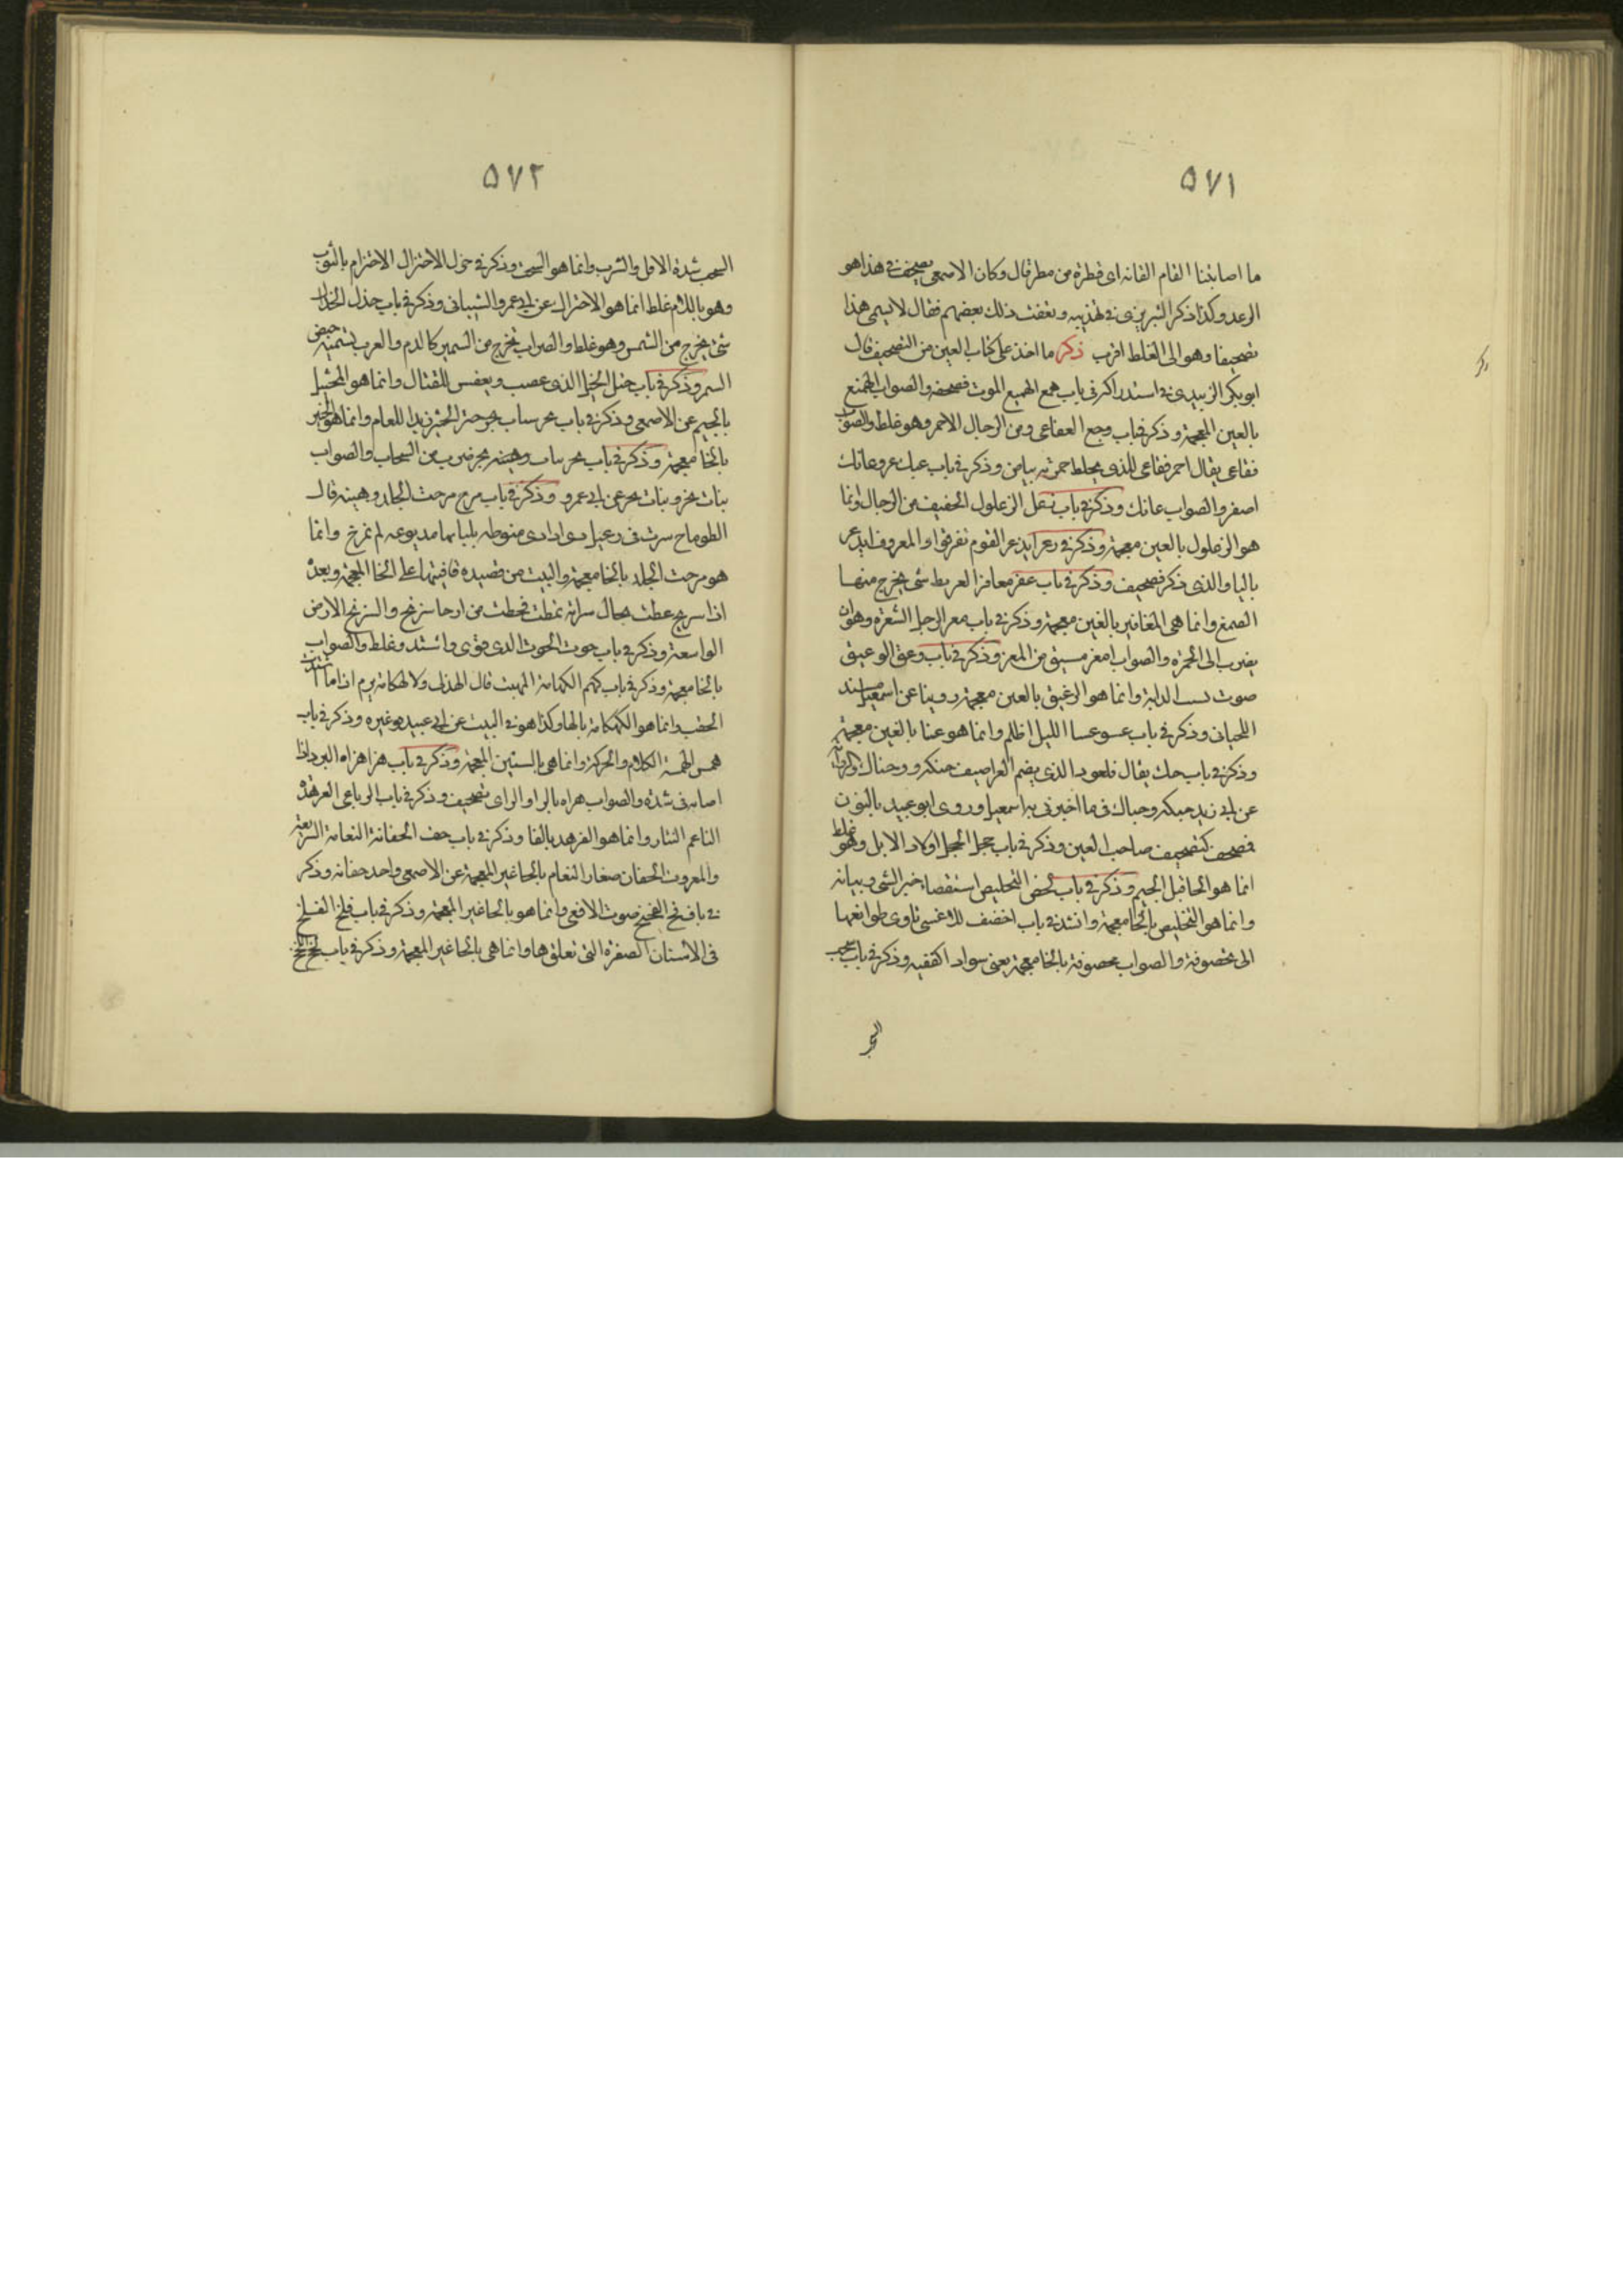 ٥٧١
ما اصابتنا العام القابه اى قطرة من مطر قال وكان الاصمعى يصحف فى هذا هو
الرعد وكذا ذكر التبريزى فى تهذيبه وتعقب ذلك بعضهم فقال لا يسمى هذا
تصحيفا وهو الى الغلط اقرب ذكر ما اخذ على كتاب العين من التصحيف قال
ابو بكر الزبيدى فى استدراكه فى باب همع الهميع الموت فصحفه والصواب الهميغ
بالغين المعجمة وذكر فى باب وجع العفاعى ومن الرجال الاحمر وهو غلط والصواب
فقاعى يقال احمر فقاعى للذى يخلط حمرته بياض وذكر فى باب عبك عرو عانك
اصفر والصواب عاتك وذكر فى باب زعل الزعلول الخفيف من الرجال وانما
هو الزغلول بالغين معجمة وذكر فى ذعر ابذعر القوم تفرقوا والمعروف ابذعر
بالبا والذى ذكر تصحيف وذكر فى باب عفر معافر العرفط شى يخرج منها
الصمغ وانما هى المغافير بالغين معجمة وذكر فى باب معر الرجل الشعرة وهو ان
يضرب الى الحمرة والصواب امغر مشتق من المغرة وذكر فى باب وعق الوعيق
صوت الدابة وانما هو الوغيق بالغين معجمة روينا عن اسمعيل
اللحيانى وذكر فى باب عسو عسا الليل اظلم وانما هو غسا بالغين معجمة
وذكر فى باب حنك يقال للعود الذى يضم العراصيف حنكة وحناك
عن ابى زيد حبكة وحباك فيما اخبرنى به اسمعيل وروى ابو عبيد بالنون
فصحف كتصحيف صاحب العين وذكر فى باب حجل الحجل اولاد الابل وهو غلط
انما هو الحافل الجيم وذكر فى باب لحص التلحيص استقصاء خبر الشى وبيانه
وانما هو التلخيص بالخا معجمة وانشد فى باب اخصف للاعشى تاوى طوائفها
الى محصوفة والصواب مخصوفة بالخا معجمة يعنى سواد الكتيبة وذكر فى باب سحب
٥٧٢
السحب شدة الاكل والشرب وانما هو السحت وذكر فى حزل الاحتزال الاحتزام بالثوب
وهو باللام غلط انما هو الاحتزاك عن ابى عمرو الشيبانى وذكر فى باب حذل الحذال
شى يخرج من الشمس وهو غلط والصواب يخرج من السمر كالدم والعرب تسميه حيض
السمر وذكر فى باب حثل الذى غضب وتنفش للقتال وانما هو المجثئل
بالجيم عن الاصمعى وذكر فى باب بحر للعام وانما هو
بالخا معجمة وذكر فى باب بحر بنات بحر ضرب من السحاب والصواب
بنات بخر وبنات مخر عن ابى عمرو وذكر فى باب مرح مرحت الجلد دهنته قال
الطرماح سرت فى رعيل ذى اداوى منوطة بلباتها مدبوغة لم تمرح وانما
هو مرخت الجلد بالخا معجمة والبيت من قصيدة قافيتها على الخا المعجمة وبعده
اذا سربخ عطت مجال سراته تمطت فحطت من ارجا سربخ والسربخ الارض
الواسعة وذكر فى باب حوت الحوت الذى قوى واشتد وغلط والصواب
بالخا معجمة وذكر فى باب كهم الكهامة المتهيب قال الهذلى ولا كهكامة برم اذا ما اشتدت
الحقب وانما هو الكهكامة بالها وكذا هو فى البيت عن ابى عبيد وغيره وذكر فى باب
همس الهمسة الكلام والحركة وانما هى بالشين المعجمة وذكر فى باب هزأ هزاه البرد اذا
اصابه فى شدة والصواب هراه بالرا والزاى تصحيف وذكر فى باب الرباعى العرهد
الناعم التار وانما هو الفرهد بالفا وذكر فى باب خف الخفانة النعامة السريعة
والمعروف الحفان صغار النعام بالحا غير المعجمة عن الاصمعى واحده حفانة وذكر
فى باب فخ الفخيخ صوت الافعى وانما هو بالحا غير المعجمة وذكر فى باب قلخ القلخ
فى الاسنان الصفرة التى تعلوها وانما هى بالحا غير المعجمة وذكر فى باب